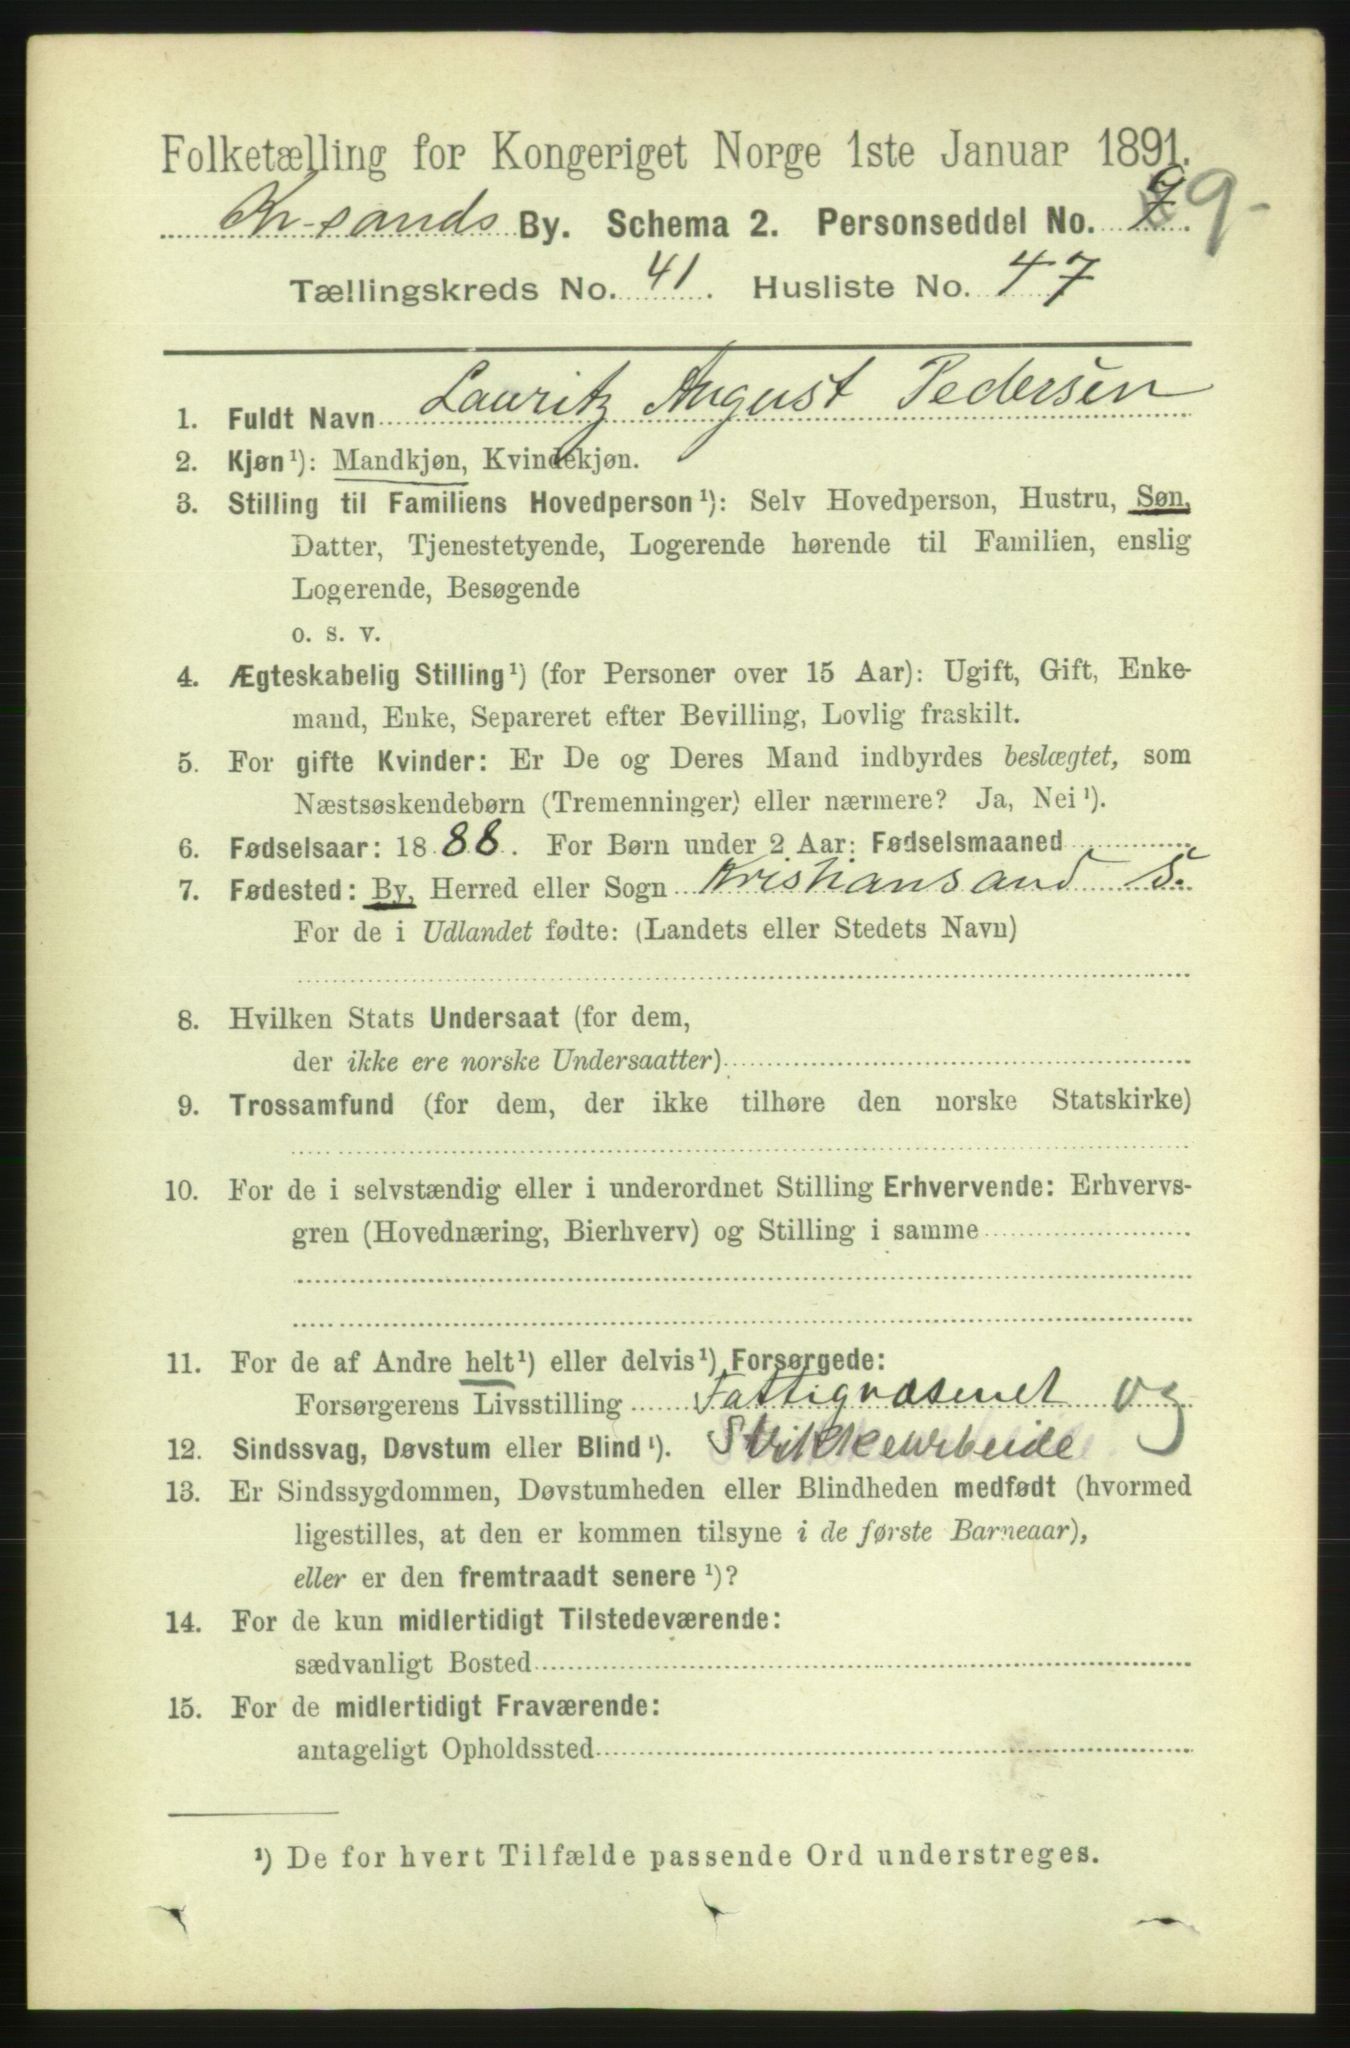 Folketælling for Kongeriget Norge 1ste Januar 1891.
Kr-sands By. Schema 2. Personseddel No. 9. 9-
Tællingskreds No. 41. Husliste No. 47
1. Fuldt Navn Lauritz August Pedersen
2. Kjøn¹): Mandkjøn, Kvindekjøn.
3. Stilling til Familiens Hovedperson¹): Selv Hovedperson, Hustru, Søn,
Datter, Tjenestetyende, Logerende hørende til Familien, enslig
Logerende, Besøgende
o. s. v.
4. Ægteskabelig Stilling¹) (for Personer over 15 Aar): Ugift, Gift, Enke-
mand, Enke, Separeret efter Bevilling, Lovlig fraskilt.
5. For gifte Kvinder: Er De og Deres Mand indbyrdes beslægtet, som
Næstsøskendebørn (Tremenninger) eller nærmere? Ja, Nei¹).
6. Fødselsaar: 1888. For Børn under 2 Aar: Fødselsmaaned
7. Fødested: By, Herred eller Sogn Kristiansand S.
For de i Udlandet fødte: (Landets eller Stedets Navn)
8. Hvilken Stats Undersaat (for dem,
der ikke ere norske Undersaatter)
9. Trossamfund (for dem, der ikke tilhøre den norske Statskirke)
10. For de i selvstændig eller i underordnet Stilling Erhvervende: Erhvervs-
gren (Hovednæring, Bierhverv) og Stilling i samme
11. For de af Andre helt¹) eller delvis¹) Forsørgede:
Forsørgerens Livsstilling Fattigvæsenet og
12. Sindssvag, Døvstum eller Blind¹). Strikkearbeide
13. Er Sindssygdommen, Døvstumheden eller Blindheden medfødt (hvormed
ligestilles, at den er kommen tilsyne i de første Barneaar),
eller er den fremtraadt senere¹)?
14. For de kun midlertidigt Tilstedeværende:
sædvanligt Bosted
15. For de midlertidigt Fraværende:
antageligt Opholdssted
¹) De for hvert Tilfælde passende Ord understreges.